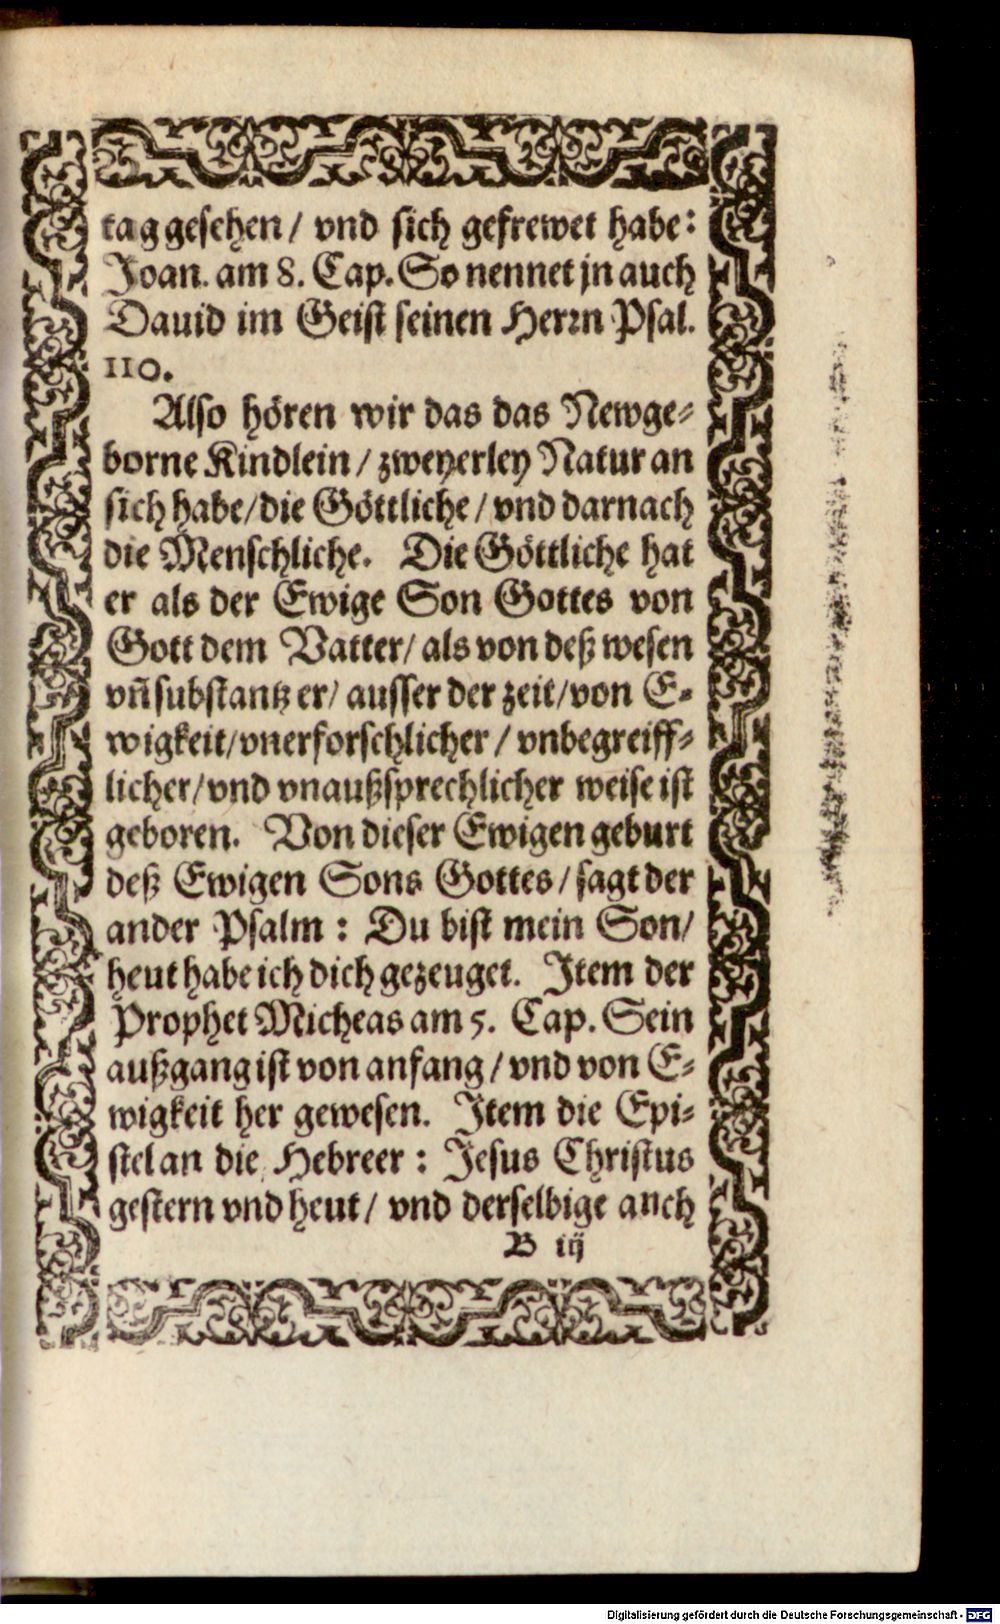 tag gesehen / vnd sich gefrewet habe:
Joan. am 8. Cap. So nennet jn auch
Dauid im Geist seinen Herrn Psal.
110.
Also hören wir das das Newge-
borne Kindlein / zweyerley Natur an
sich habe / die Göttliche / vnd darnach
die Menschliche. Die Göttliche hat
er als der Ewige Son Gottes von
Gott dem Vatter / als von deß wesen
vñ substantz er / ausser der zeit / von E-
wigkeit / vnerforschlicher / vnbegreiff-
licher / vnd vnaußsprechlicher weise ist
geboren. Von dieser Ewigen geburt
deß Ewigen Sons Gottes / sagt der
ander Psalm : Du bist mein Son /
heut habe ich dich gezeuget. Item der
Prophet Micheas am 5. Cap. Sein
außgang ist von anfang / vnd von E-
wigkeit her gewesen. Item die Epi-
stel an die Hebreer : Jesus Christus
gestern vnd heut / vnd derselbige auch
B iij
Digitalisierung gefördert durch die Deutsche Forschungsgemeinschaft - DFG